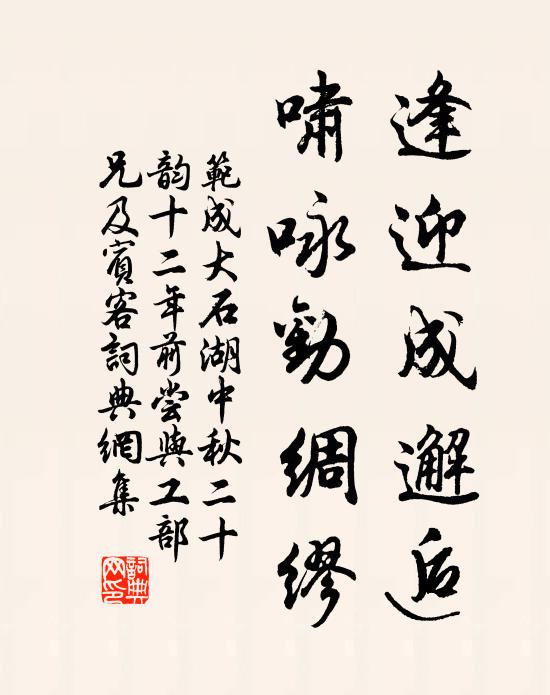 逢迎成邂逅
嘯咏勤綢繆
範成大石湖中秋二十
韵十二年前嘗與工部
兄及賓客詞典網集
詞典
网印